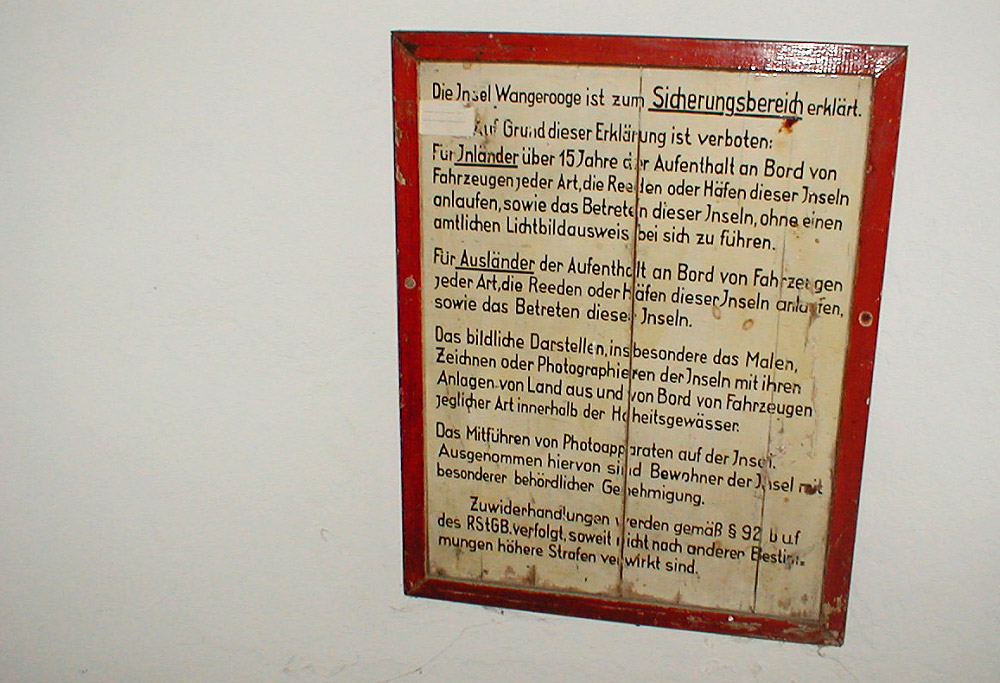 Die Insel Wangerooge ist zum Sicherungsbereich erklärt.
Auf Grund dieser Erklärung ist verboten:
Für Inländer über 15 Jahre der Aufenthalt an Bord von
Fahrzeugen jeder Art, die Reeden oder Häfen dieser Inseln
anlaufen, sowie das Betreten dieser Inseln, ohne einen
amtlichen Lichtbildausweis bei sich zu führen.
Für Ausländer der Aufenthalt an Bord von Fahrzeugen
jeder Art, die Reeden oder Häfen dieser Inseln anlaufen,
sowie das Betreten dieser Inseln.
Das bildliche Darstellen, insbesondere das Malen,
Zeichnen oder Photographieren der Inseln mit ihren
Anlagen von Land aus und von Bord von Fahrzeugen
jeglicher Art innerhalb der Hoheitsgewässer.
Das Mitführen von Photoapparaten auf der Insel.
Ausgenommen hiervon sind Bewohner der Insel mit
besonderer behördlicher Genehmigung.
Zuwiderhandlungen werden gemäß § 92 b u.f
des RStGB. verfolgt, soweit nicht nach anderer Bestim=
mungen höhere Strafen verwirkt sind.